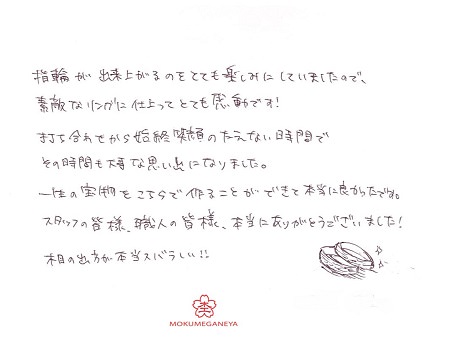 指輪が出来上がるのをとても楽しみにしていましたので、
素敵なリングに仕上ってとても感動です!
打ち合わせから始終笑顔のたえない時間で
その時間も大事な思い出になりました。
一生の宝物をこちらで作ることができて本当に良かったです。
スタッフの皆様、職人の皆様、本当にありがとうございました!
木目の出方が本当スバラしい!!
MOKUMEGANEYA